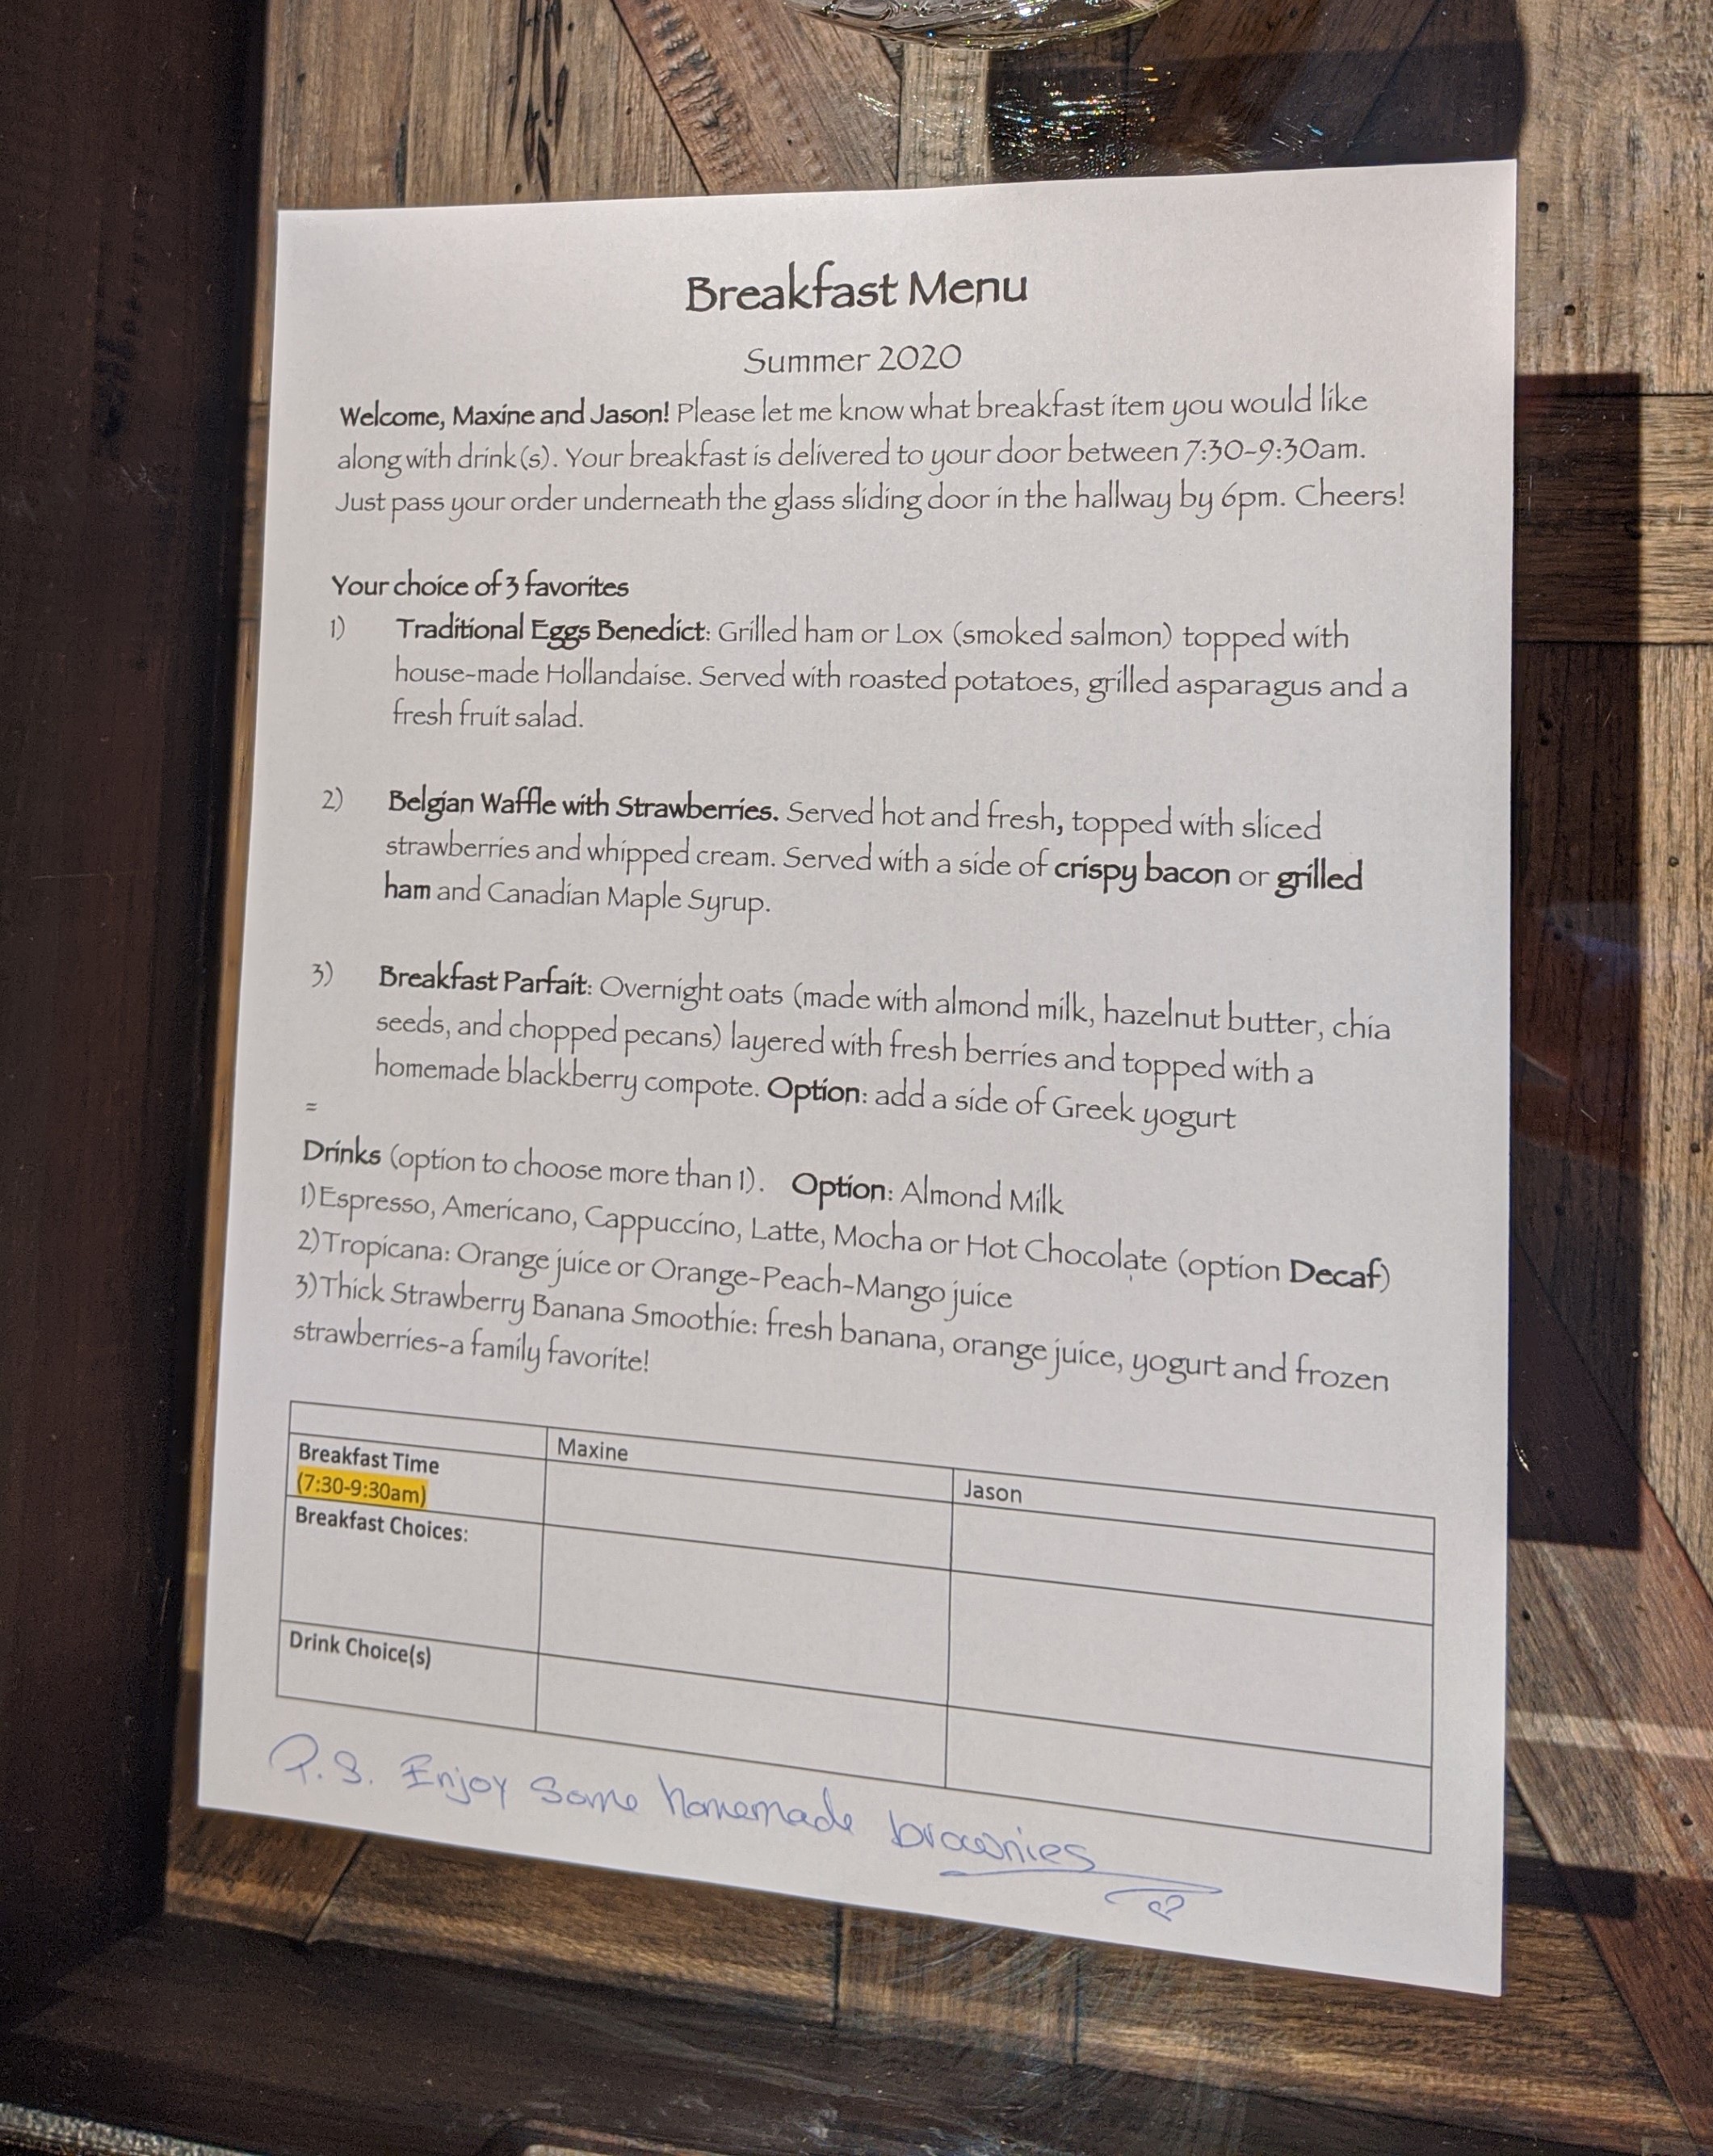 Breakfast Menu
Summer 2020
Welcome, Maxine and Jason! Please let me know what breakfast item you would like
along with drink(s). Your breakfast is delivered to your door between 7:30-9:30am.
Just pass your order underneath the glass sliding door in the hallway by 6pm. Cheers!
Your choice of 3 favorites
1) Traditional Eggs Benedict: Grilled ham or Lox (smoked salmon) topped with
house-made Hollandaise. Served with roasted potatoes, grilled asparagus and a
fresh fruit salad.
2) Belgian Waffle with Strawberries. Served hot and fresh, topped with sliced
strawberries and whipped cream. Served with a side of crispy bacon or grilled
ham and Canadian Maple Syrup.
3) Breakfast Parfait: Overnight oats (made with almond milk, hazelnut butter, chia
seeds, and chopped pecans) layered with fresh berries and topped with a
homemade blackberry compote. Option: add a side of Greek yogurt
=
Drinks (option to choose more than 1). Option: Almond Milk
1)Espresso, Americano, Cappuccino, Latte, Mocha or Hot Chocolate (option Decaf)
2)Tropicana: Orange juice or Orange-Peach-Mango juice
3)Thick Strawberry Banana Smoothie: fresh banana, orange juice, yogurt and frozen
strawberries-a family favorite!
Maxine Jason
Breakfast Time
(7:30-9:30am)
Breakfast Choices:
Drink Choice(s)
P.S. Enjoy some homemade brownies